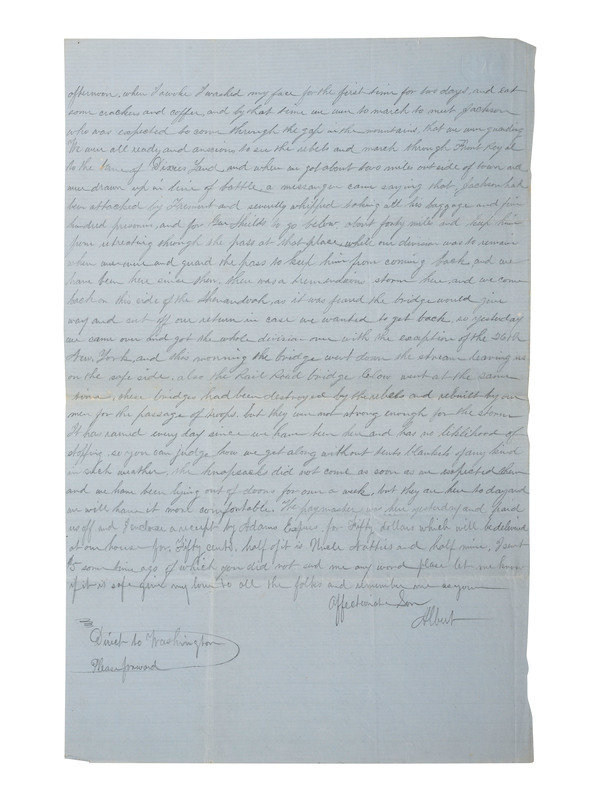 afternoon, when I awoke I washed my face for the first time for two days, and eat
some crackers and coffee, and by that time we were to march to meet Jackson
who was expected to come through the gap in the mountains, that we were guarding
We were all ready and anxious to see the rebels and march through Front Royal
to the tune of Dixies Land and when we got about two miles out side of town and
were drawn up in line of battle, a messenger came saying that Jackson had
been attacked by Fremont and severely whipped taking all his baggage and five
hundred prisoners, and for Gen Shields to go below about forty miles and keep him
from retreating through the pass at that place, while our division was to remain
where we were and guard the pass to keep him from coming back, and we
have been here ever since then, there was a tremendous storm here and we come
back on this side of the Shenandoah, as it was feared the bridge would give
way and cut off our return in case we wanted to get back, so yesterday
we came over and got the whole division over with the exception of the 26th
New York, and this morning the bridge went down the stream leaving us
on the safe side, also the Rail Road bridge below went at the same
time, these bridges had been destroyed by the rebels and rebuilt by our
men for the passage of troops, but they were not strong enough for the storm
It has rained every day since we have been here and has no likelihood of
stopping so you can judge how we get along without tents blankets of any kind
in such weather. the knapsacks did not come as soon as we expected them
and we have been lying out of doors for over a week, but they are here to day and
we will have it more comfortable. The paymaster was here yesterday and paid
us off and I enclose a receipt by Adams Express for Fifty dollars which will be delivered
at our house for Fifty cents. half of it is Uncle Natties and half mine, I sent
$5 some time ago of which you did not send me any word please let me know
if it is safe give my love to all the folks and remember me as your
Affectionate Son
Albert
Direct to Washington
Please forward